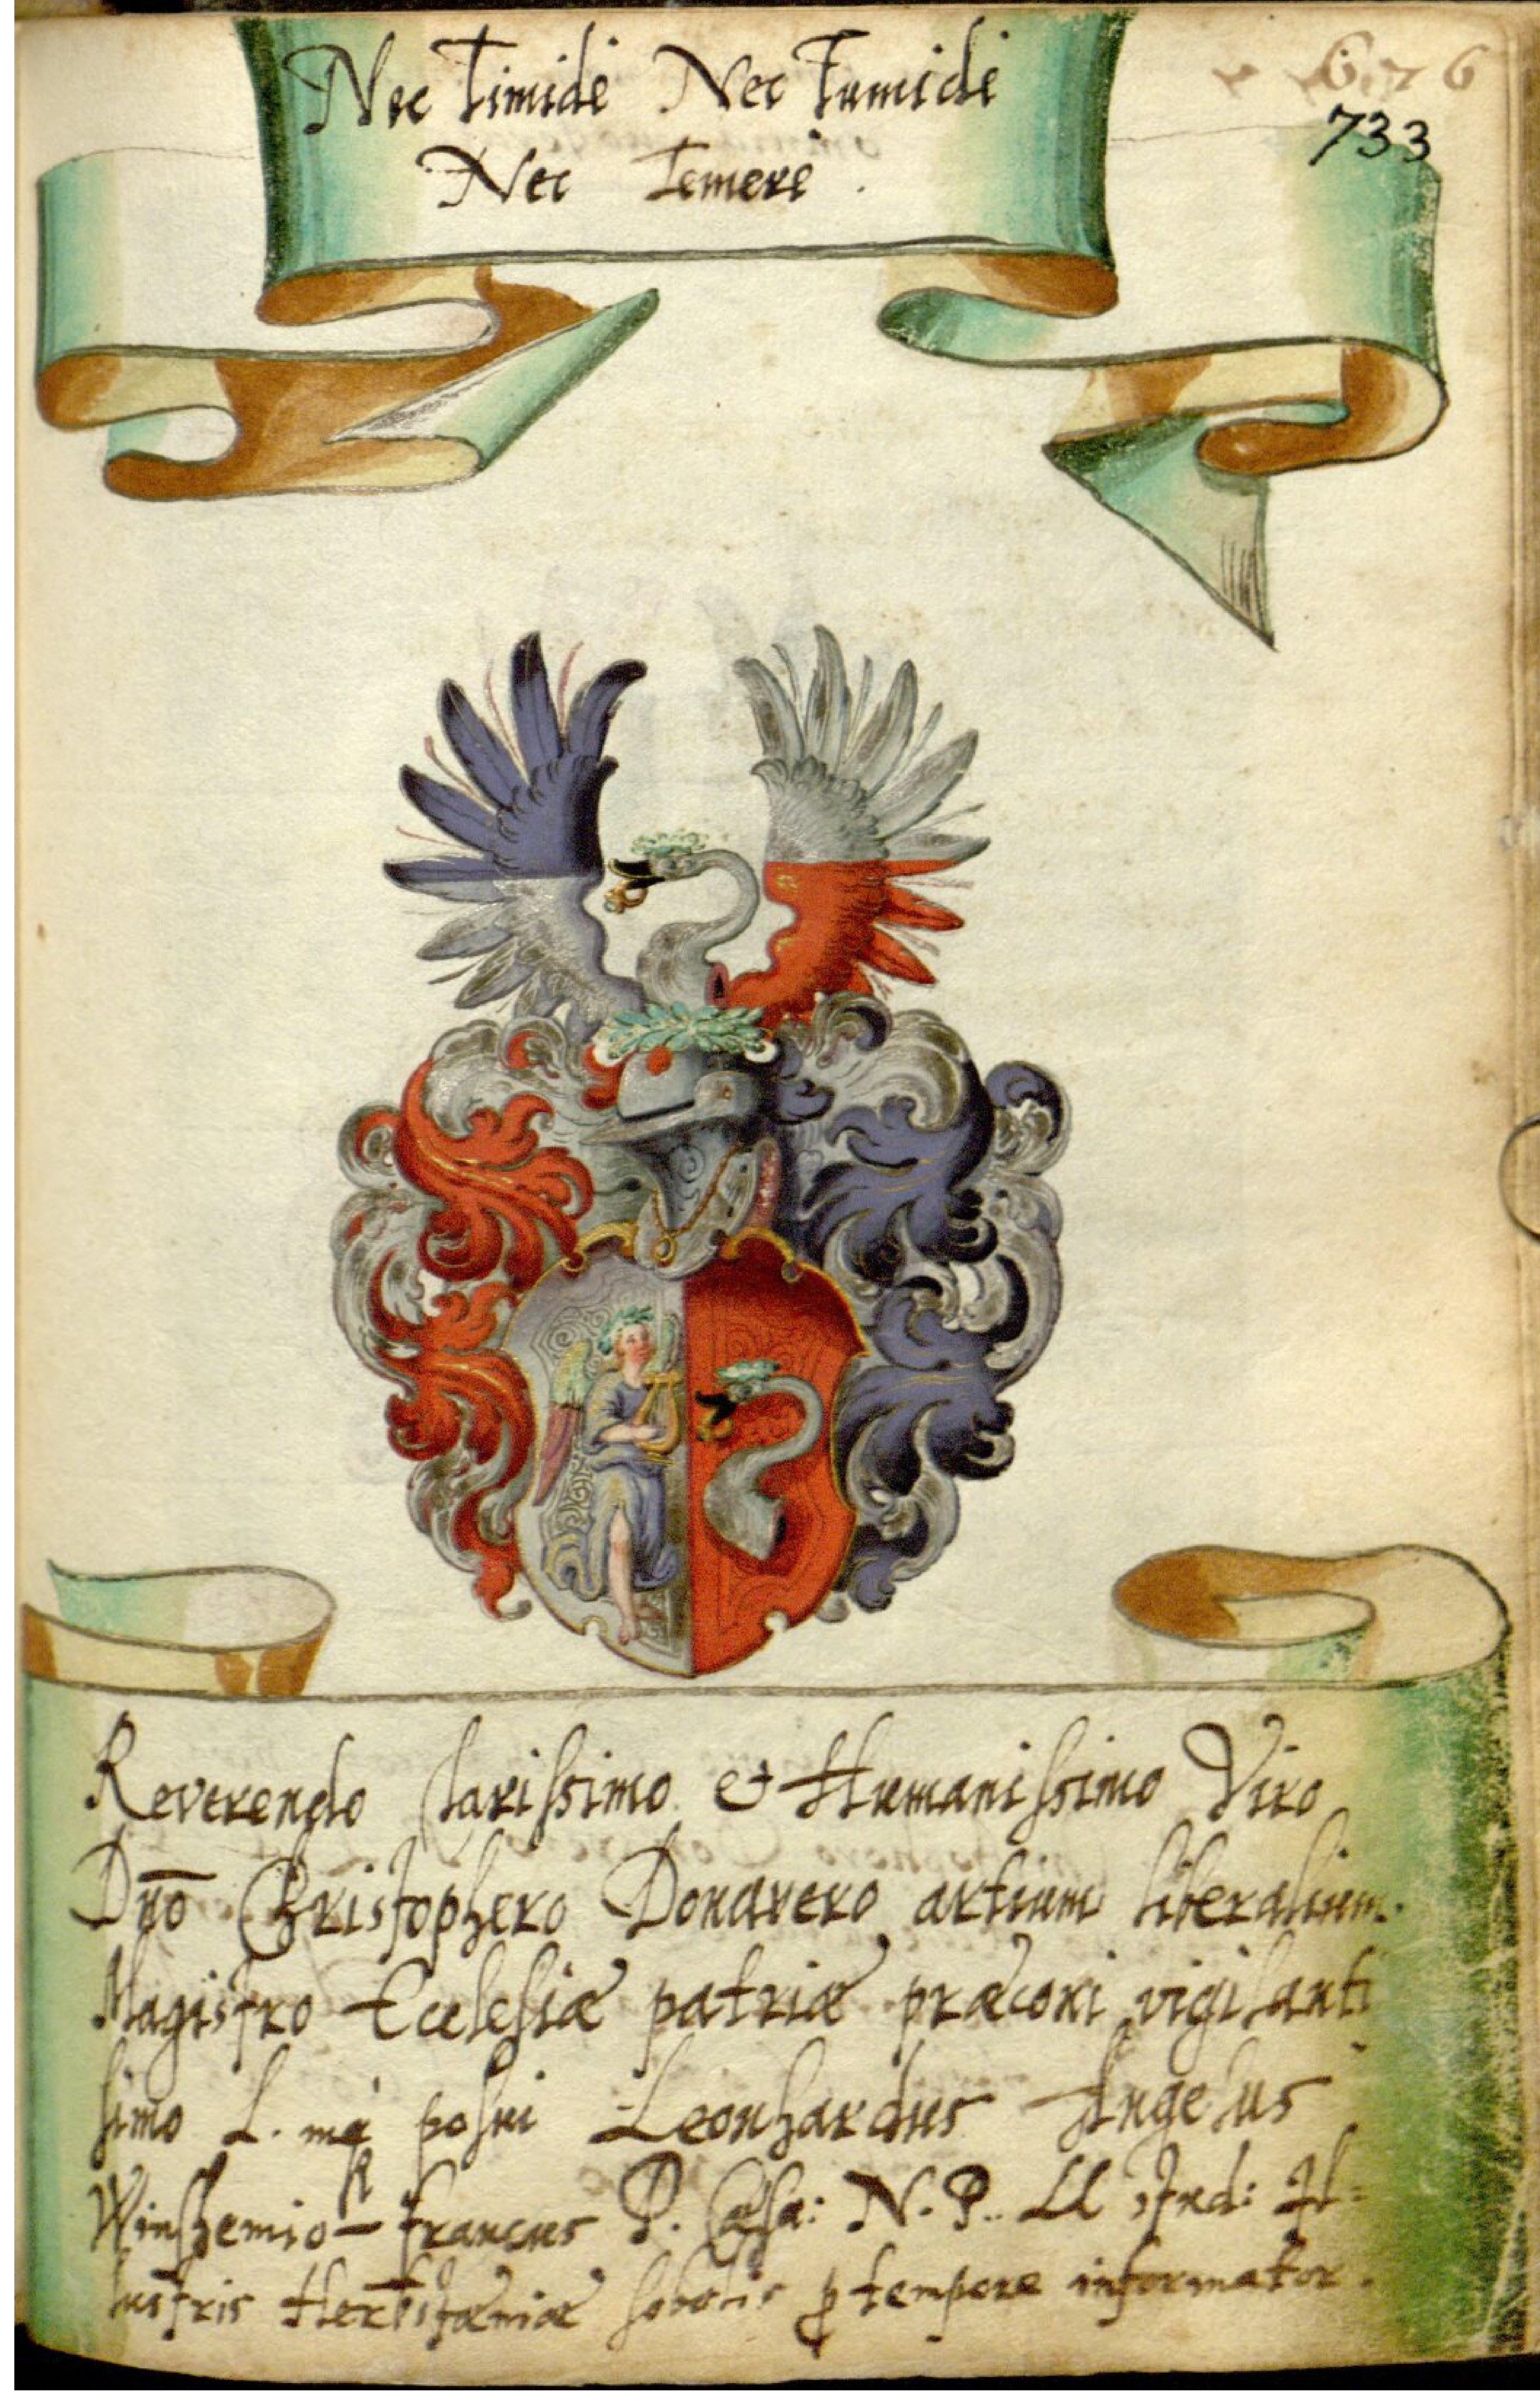 626
733
Nec Timidè Nec Tumidè
Nec Temerè.
Reverendo Clarissimo & Humanissimo Viro
Dn̄o Christophero Donavero artium liberalium
Magistro Ecclesiæ patriæ præconi vigilanti
simo L. mq́ posui Leonhardus Angelus
Winshemio-Francus P. Cæsa: N. P. LL Stud: Il=
lustris Herbestæniæ sobolis p tempore informator.